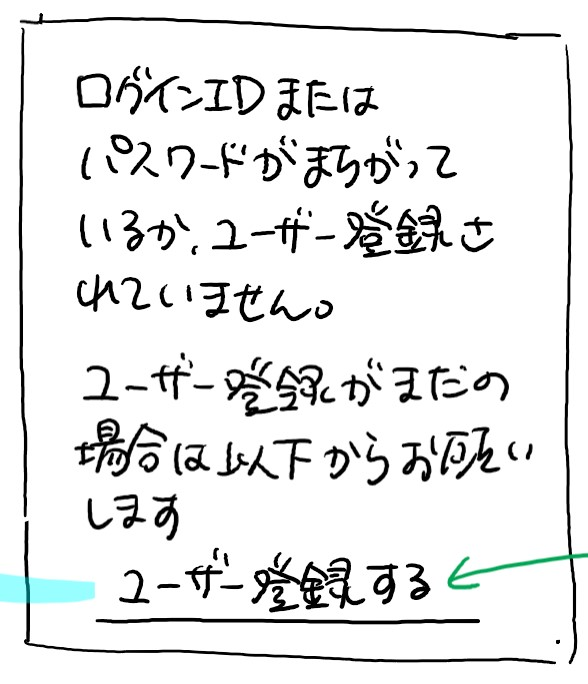 ログインIDまたは
パスワードがまちがって
いるか、ユーザー登録さ
れていません。
ユーザー登録がまだの
場合は以下からお願い
します
ユーザー登録する